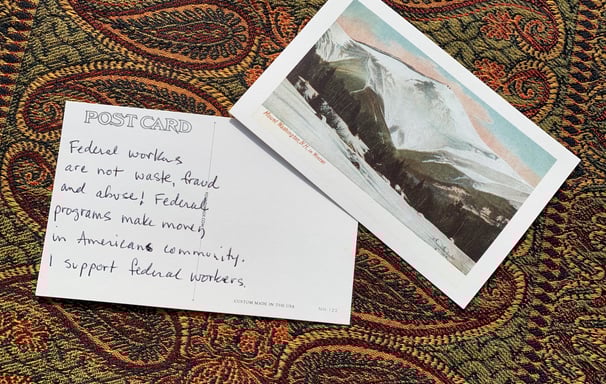 POST CARD
Federal workers
are not waste, fraud
and abuse! Federal
programs make money
in Americans commonity.
I support federal workers.
CUSTOM MADE IN THE USA
NH 122
Mount Washington, N.H. in Winter.